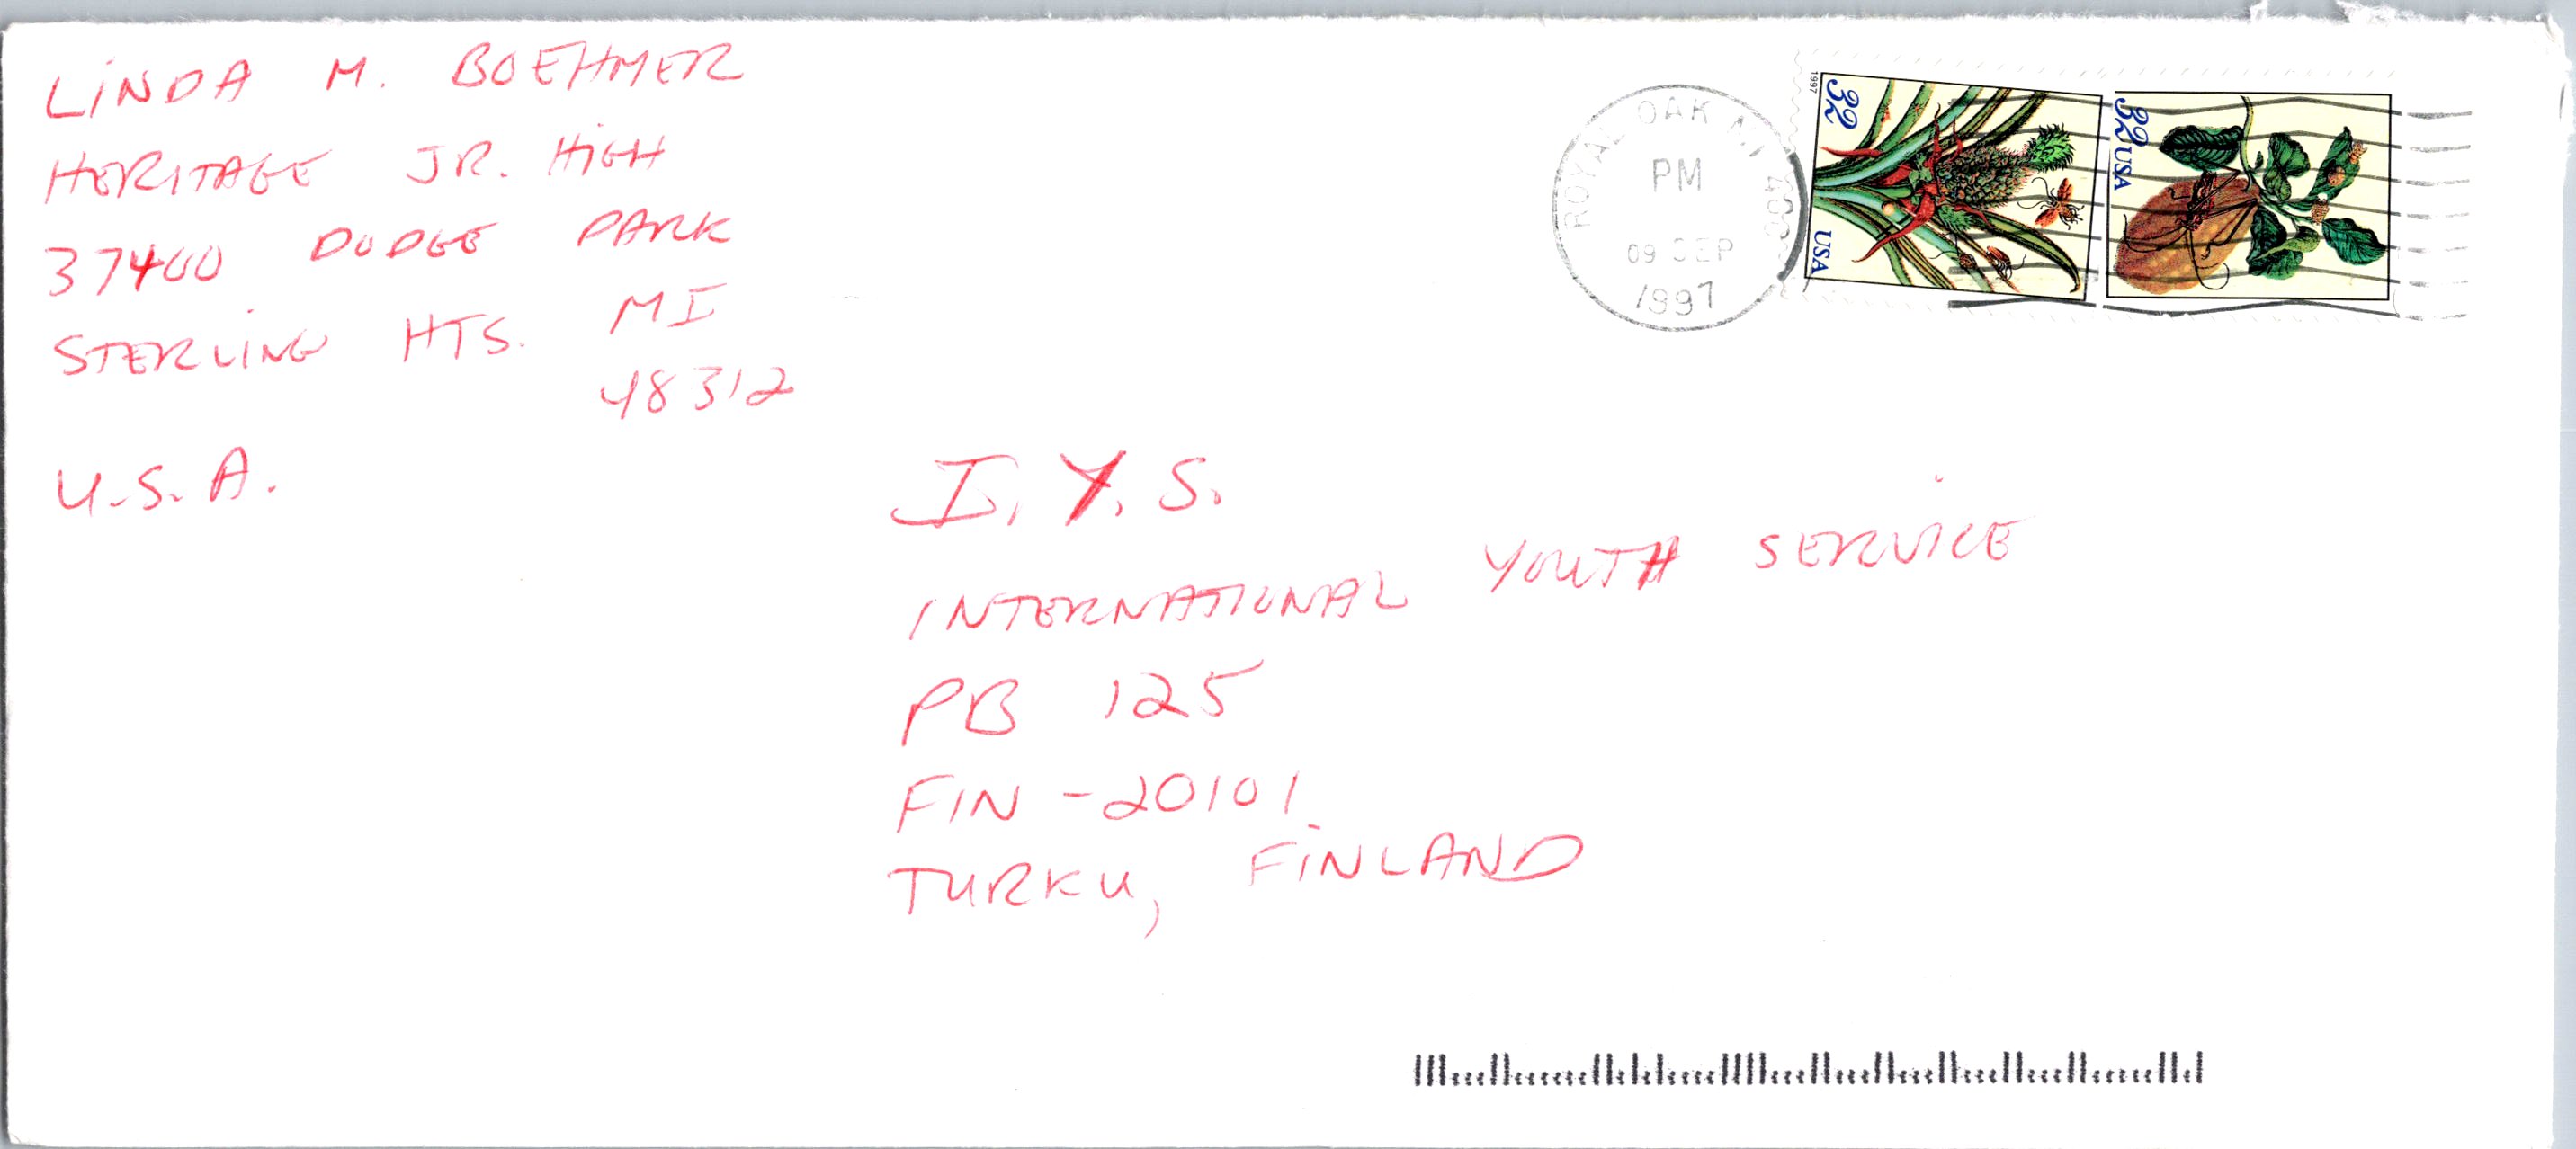 LINDA M. BOEHMER
HERITAGE JR. HIGH
37400 DODGE PARK
STERLING HTS. MI
48312
U.S.A.
ROYAL OAK MI
PM
09 SEP
1997
1997
32 USA
32 USA
I.Y.S.
INTERNATIONAL YOUTH SERVICE
PB 125
FIN -20101
TURKU, FINLAND